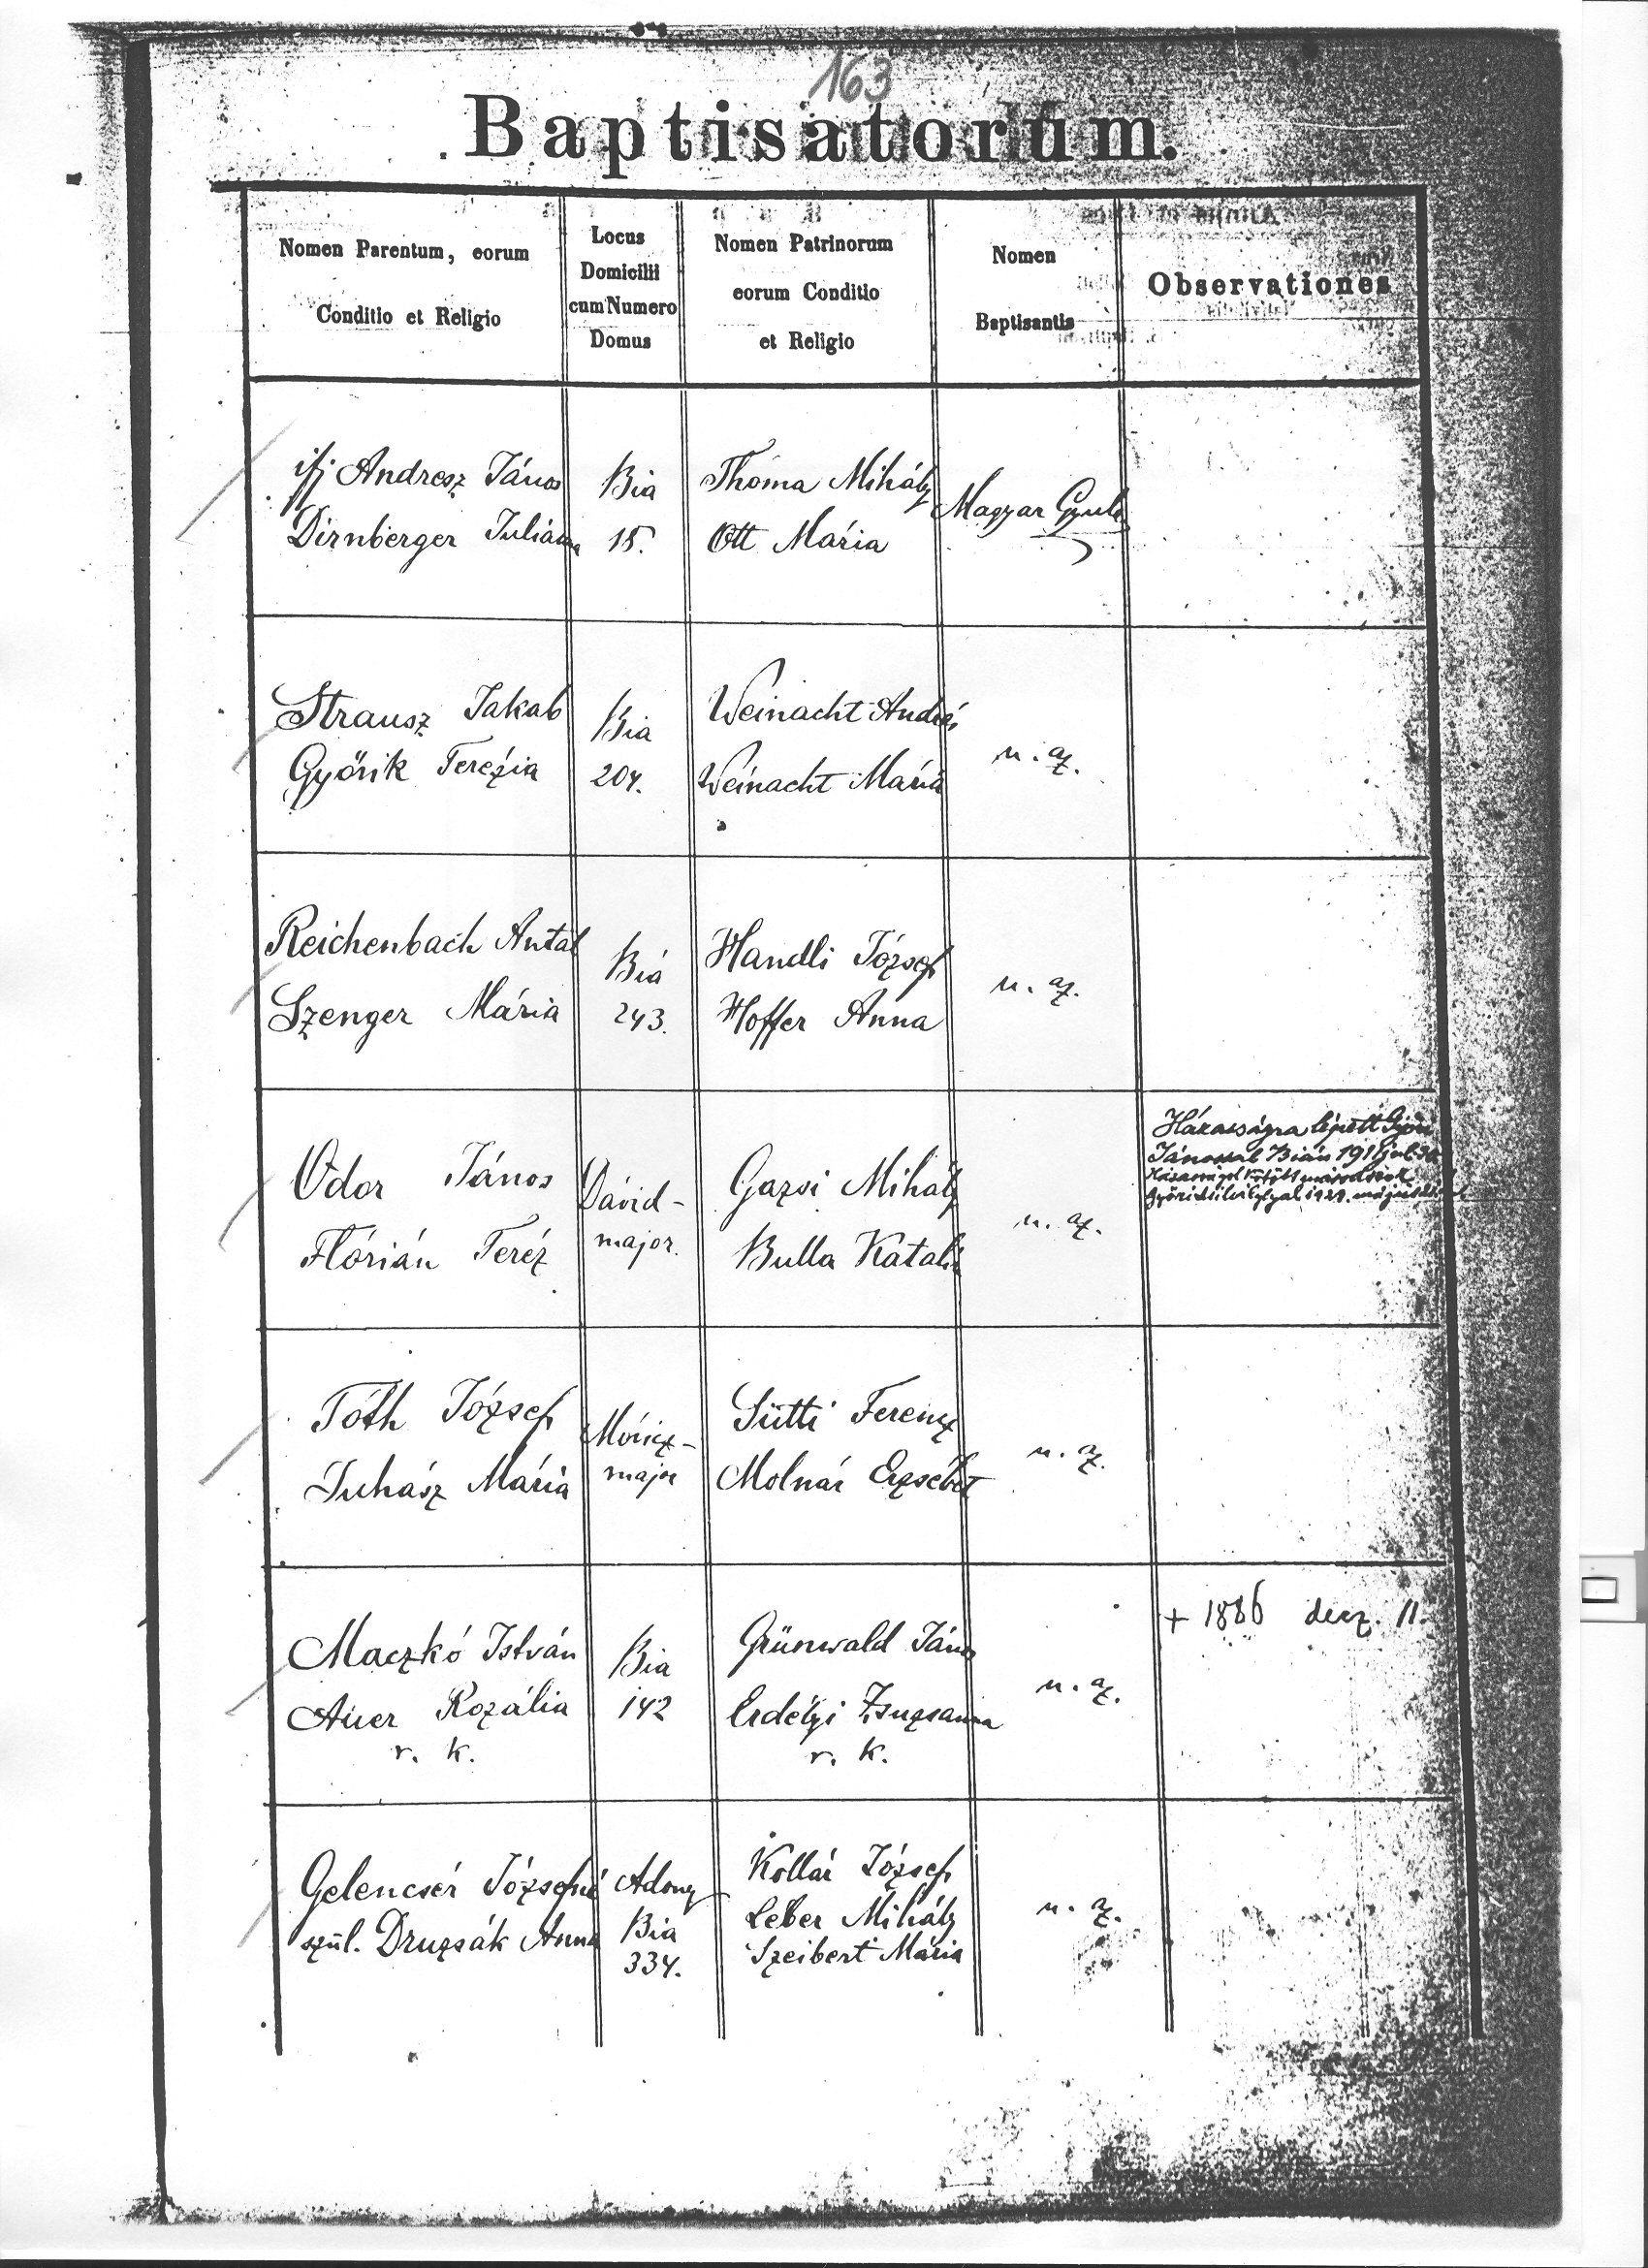 163
Baptisatorum.
Nomen Parentum, eorum
Conditio et Religio
Locus
Domicilii
cum Numero
Domus
Nomen Patrinorum
eorum Conditio
et Religio
Nomen
Baptisantis
Observationes
ifj Andresz János
Dirnberger Juliánna
Bia
15.
Thóma Mihály
Ott Mária
Magyar Gyula
Strausz Jakab
Győrik Terézia
Bia
204.
Weinacht András
Weinacht Mária
u. az.
Reichenbach Antal
Szenger Mária
Bia
243.
Handli József
Hoffer Anna
u. az.
Odor János
Flórián Teréz
Dávid-
major.
Gazsi Mihály
Bulla Katalin
u. az.
Házasságra lépett Győri
Jánossal Bián 191
Házasságot kötött másodszor
1929. május
Tóth József
Juhász Mária
Móricz-
major
Sütti Ferencz
Molnár Erzsébet
u. az.
Maczkó István
Auer Rozália
r. k.
Bia
142
Grünwald János
Erdélyi Zsuzsanna
r. k.
u. az.
+ 1886 decz. 11.
Gelencsér Józsefné
szül. Druzsák Anna
Adony
Bia
334.
Kollár József
Leber Mihály
Szeibert Mária
u. az.